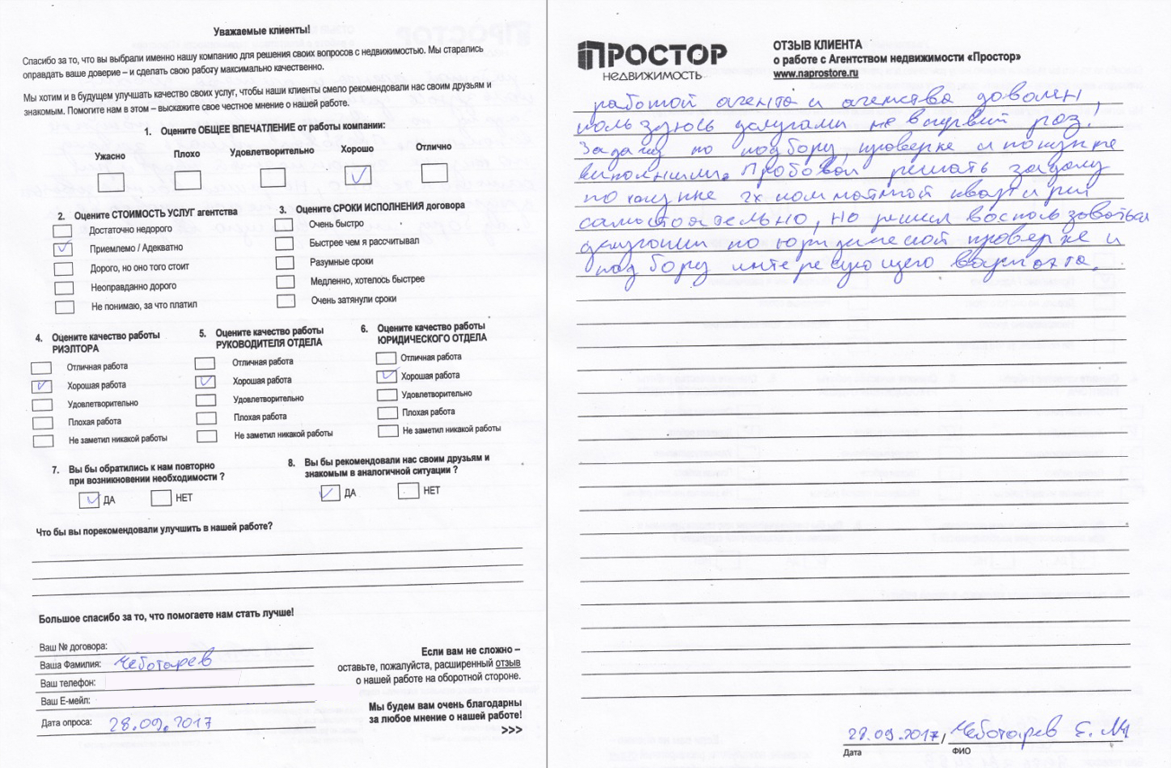 Уважаемые клиенты!
Спасибо за то, что вы выбрали именно нашу компанию для решения своих вопросов с недвижимостью. Мы старались
оправдать ваше доверие – и сделать свою работу максимально качественно.
Мы хотим и в будущем улучшать качество своих услуг, чтобы наши клиенты смело рекомендовали нас своим друзьям и
знакомым. Помогите нам в этом – выскажите свое честное мнение о нашей работе.
1. Оцените ОБЩЕЕ ВПЕЧАТЛЕНИЕ от работы компании:
Ужасно Плохо Удовлетворительно Хорошо Отлично
2. Оцените СТОИМОСТЬ УСЛУГ агентства
Достаточно недорого
Приемлемо / Адекватно
Дорого, но оно того стоит
Неоправданно дорого
Не понимаю, за что платил
3. Оцените СРОКИ ИСПОЛНЕНИЯ договора
Очень быстро
Быстрее чем я рассчитывал
Разумные сроки
Медленно, хотелось быстрее
Очень затянули сроки
4. Оцените качество работы
РИЭЛТОРА
Отличная работа
Хорошая работа
Удовлетворительно
Плохая работа
Не заметил никакой работы
5. Оцените качество работы
РУКОВОДИТЕЛЯ ОТДЕЛА
Отличная работа
Хорошая работа
Удовлетворительно
Плохая работа
Не заметил никакой работы
6. Оцените качество работы
ЮРИДИЧЕСКОГО ОТДЕЛА
Отличная работа
Хорошая работа
Удовлетворительно
Плохая работа
Не заметил никакой работы
7. Вы бы обратились к нам повторно
при возникновении необходимости ?
ДА НЕТ
8. Вы бы рекомендовали нас своим друзьям и
знакомым в аналогичной ситуации ?
ДА НЕТ
Что бы вы порекомендовали улучшить в нашей работе?
Большое спасибо за то, что помогаете нам стать лучше!
Ваш № договора:
Ваша Фамилия: Чеботарев
Ваш телефон:
Ваш Е-мейл:
Дата опроса: 28.09.2017
Если вам не сложно –
оставьте, пожалуйста, расширенный отзыв
о нашей работе на оборотной стороне.
Мы будем вам очень благодарны
за любое мнение о нашей работе!
>>>
ПРОСТОР
НЕДВИЖИМОСТЬ
ОТЗЫВ КЛИЕНТА
о работе с Агентством недвижимости «Простор»
www.naprostore.ru
работой агента и агенства доволен,
пользуюсь услугами не впервый раз!
Задачу по подбору, проверке и покупке
выполнили. Пробовал решать задачу
по покупке 2х комнатной квартиры
самостоятельно, но решил воспользоваться
услугами по юридической проверке и
подбору интересующего варианта.
28.09.2017, Чеботарев Е. М
Дата ФИО